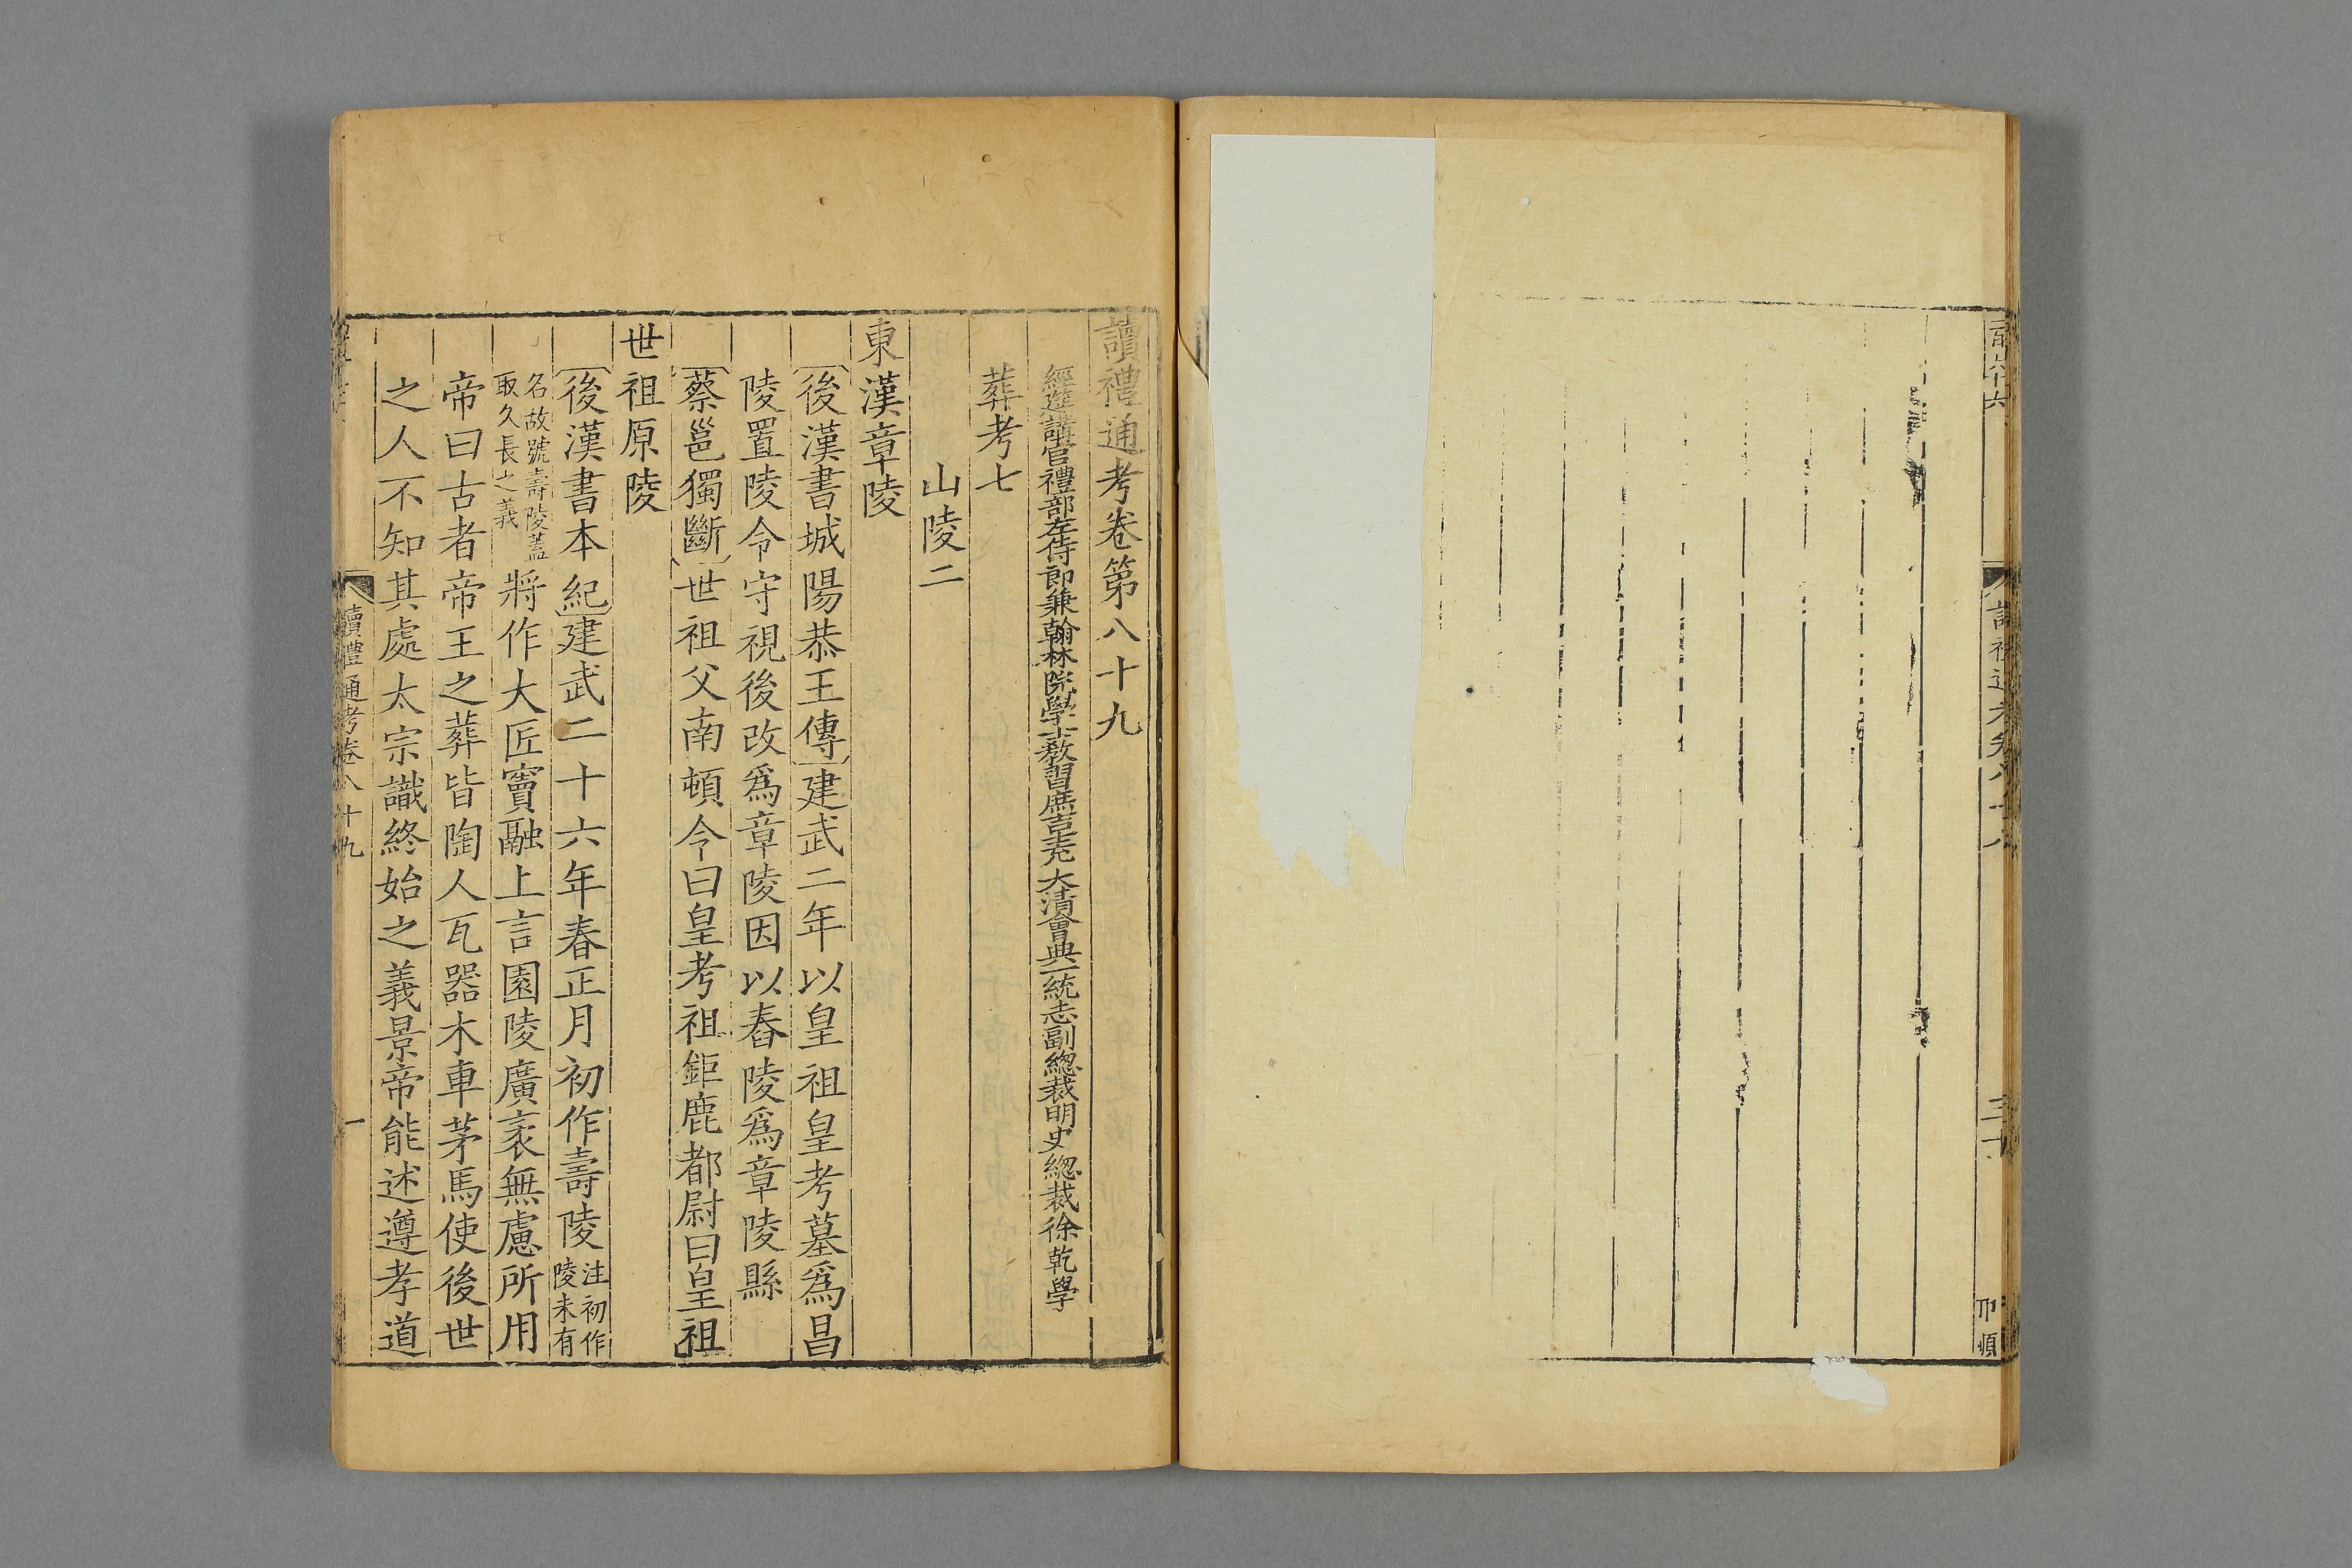 讀禮通考卷第八十九
經筵講官禮部左侍郎兼翰林院學士敎習庶吉士充大清會典一統志副總裁明史總裁徐乾學
葬考七
山陵二
東漢章陵
後漢書城陽恭王傳建武二年以皇祖皇考墓爲昌
陵置陵令守視後改爲章陵因以舂陵爲章陵縣
蔡邕獨斷世祖父南頓令曰皇考祖鉅鹿都尉曰皇祖
世祖原陵
後漢書本紀建武二十六年春正月初作壽陵注初作陵未有
名故號壽陵蓋取久長之義將作大匠竇融上言園陵廣袤無慮所用
帝曰古者帝王之葬皆陶人瓦器木車茅馬使後世
之人不知其處太宗識終始之義景帝能述遵孝道
讀禮通考卷八十九
一